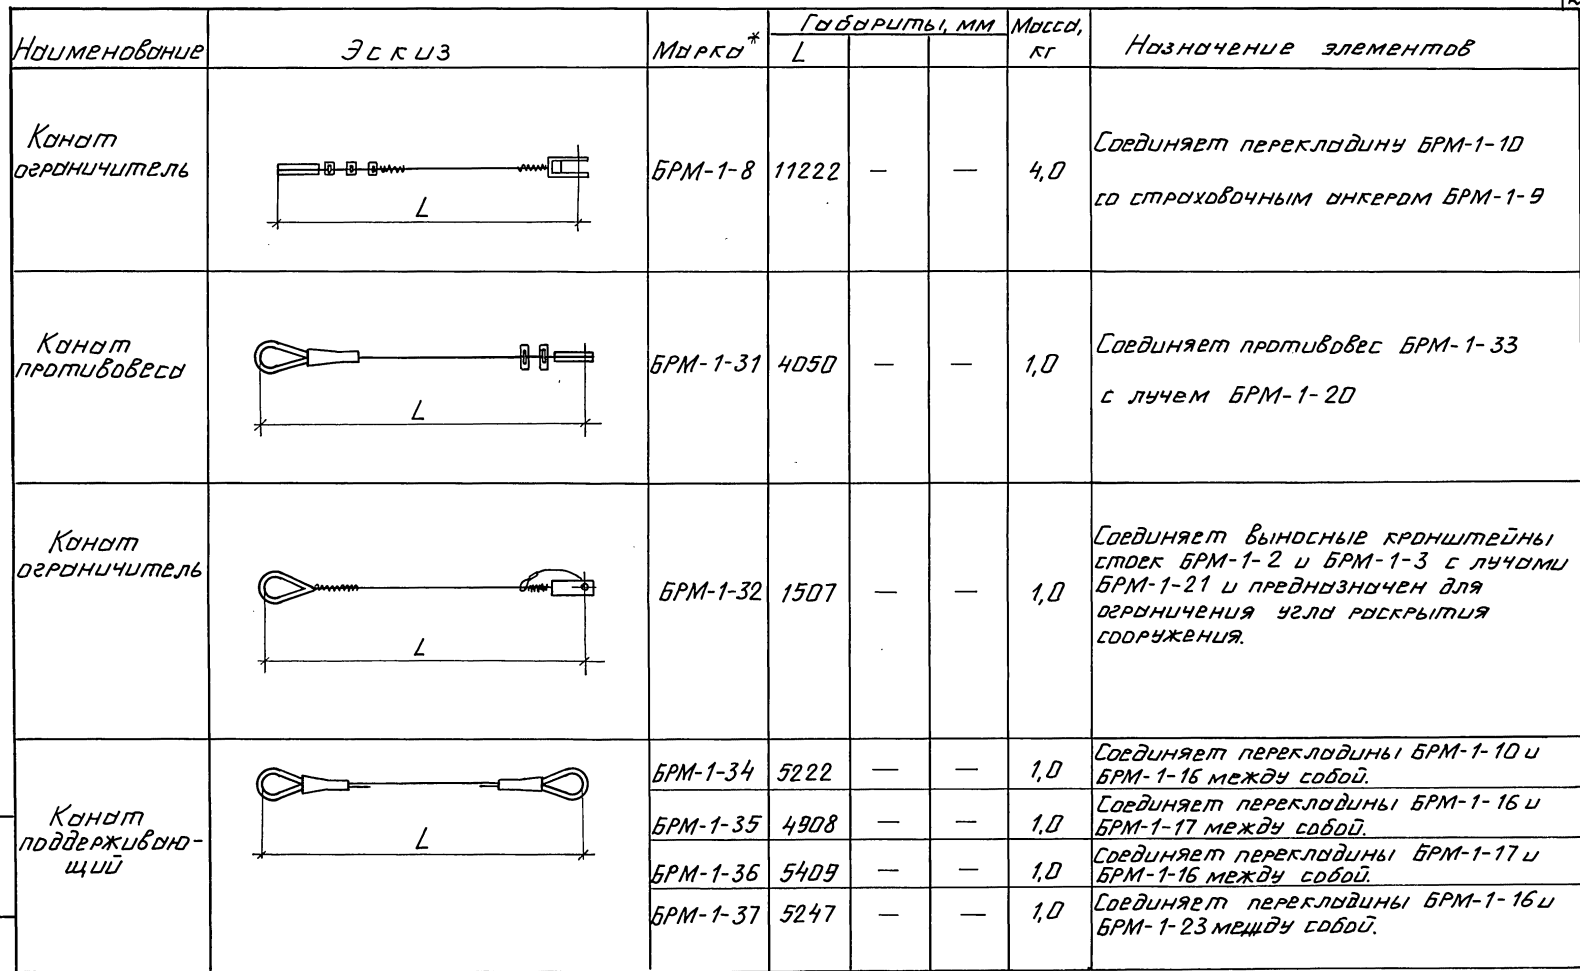 Наименование Эскиз Марка* Габариты, мм Масса, кг Назначение элементов
L
Канат
ограничитель
L
БРМ-1-8 11222 — — 4,0
Соединяет перекладину БРМ-1-10
со страховочным анкером БРМ-1-9
Канат
противовеса
L
БРМ-1-31 4050 — — 1,0
Соединяет противовес БРМ-1-33
с лучем БРМ-1-20
Канат
ограничитель
L
БРМ-1-32 1507 — — 1,0
Соединяет выносные кронштейны
стоек БРМ-1-2 и БРМ-1-3 с лучами
БРМ-1-21 и предназначен для
ограничения угла раскрытия
сооружения.
Канат
поддерживаю-
щий
L
БРМ-1-34 5222 — — 1,0
Соединяет перекладины БРМ-1-10 и
БРМ-1-16 между собой.
БРМ-1-35 4908 — — 1,0
Соединяет перекладины БРМ-1-16 и
БРМ-1-17 между собой.
БРМ-1-36 5409 — — 1,0
Соединяет перекладины БРМ-1-17 и
БРМ-1-16 между собой.
БРМ-1-37 5247 — — 1,0
Соединяет перекладины БРМ-1-16 и
БРМ-1-23 между собой.